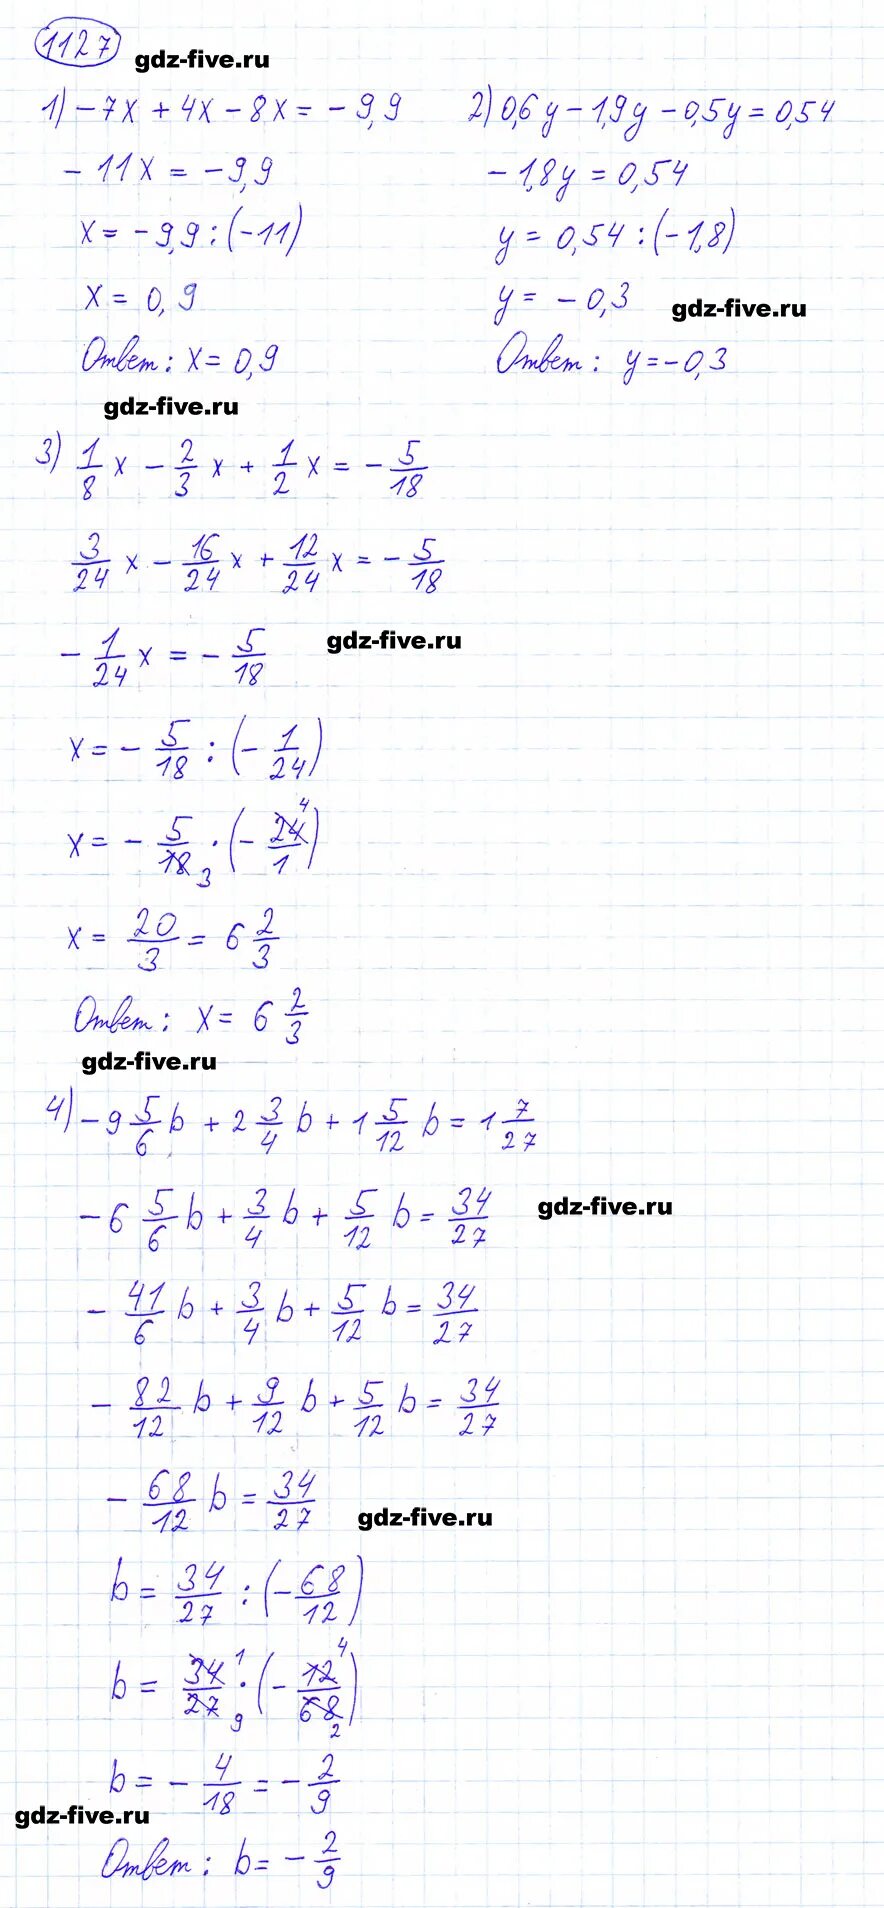 1127
gdz-five.ru
1) -7x + 4x - 8x = -9,9
-11x = -9,9
x = -9,9 : (-11)
x = 0,9
Ответ: x = 0,9
2) 0,6y - 1,9y - 0,5y = 0,54
-1,8y = 0,54
y = 0,54 : (-1,8)
y = -0,3
gdz-five.ru
Ответ: y = -0,3
gdz-five.ru
3) 1/8 x - 2/3 x + 1/2 x = - 5/18
3/24 x - 16/24 x + 12/24 x = - 5/18
- 1/24 x = - 5/18
gdz-five.ru
x = - 5/18 : (- 1/24)
x = - 5/18 3 · (- 24 4/1)
x = 20/3 = 6 2/3
Ответ: x = 6 2/3
gdz-five.ru
4) -9 5/6 b + 2 3/4 b + 1 5/12 b = 1 7/27
-6 5/6 b + 3/4 b + 5/12 b = 34/27
gdz-five.ru
- 41/6 b + 3/4 b + 5/12 b = 34/27
- 82/12 b + 9/12 b + 5/12 b = 34/27
- 68/12 b = 34/27
gdz-five.ru
b = 34/27 : (- 68/12)
b = 34 1/27 9 · (- 12 4/68 2)
b = - 4/18 = - 2/9
gdz-five.ru
Ответ: b = - 2/9